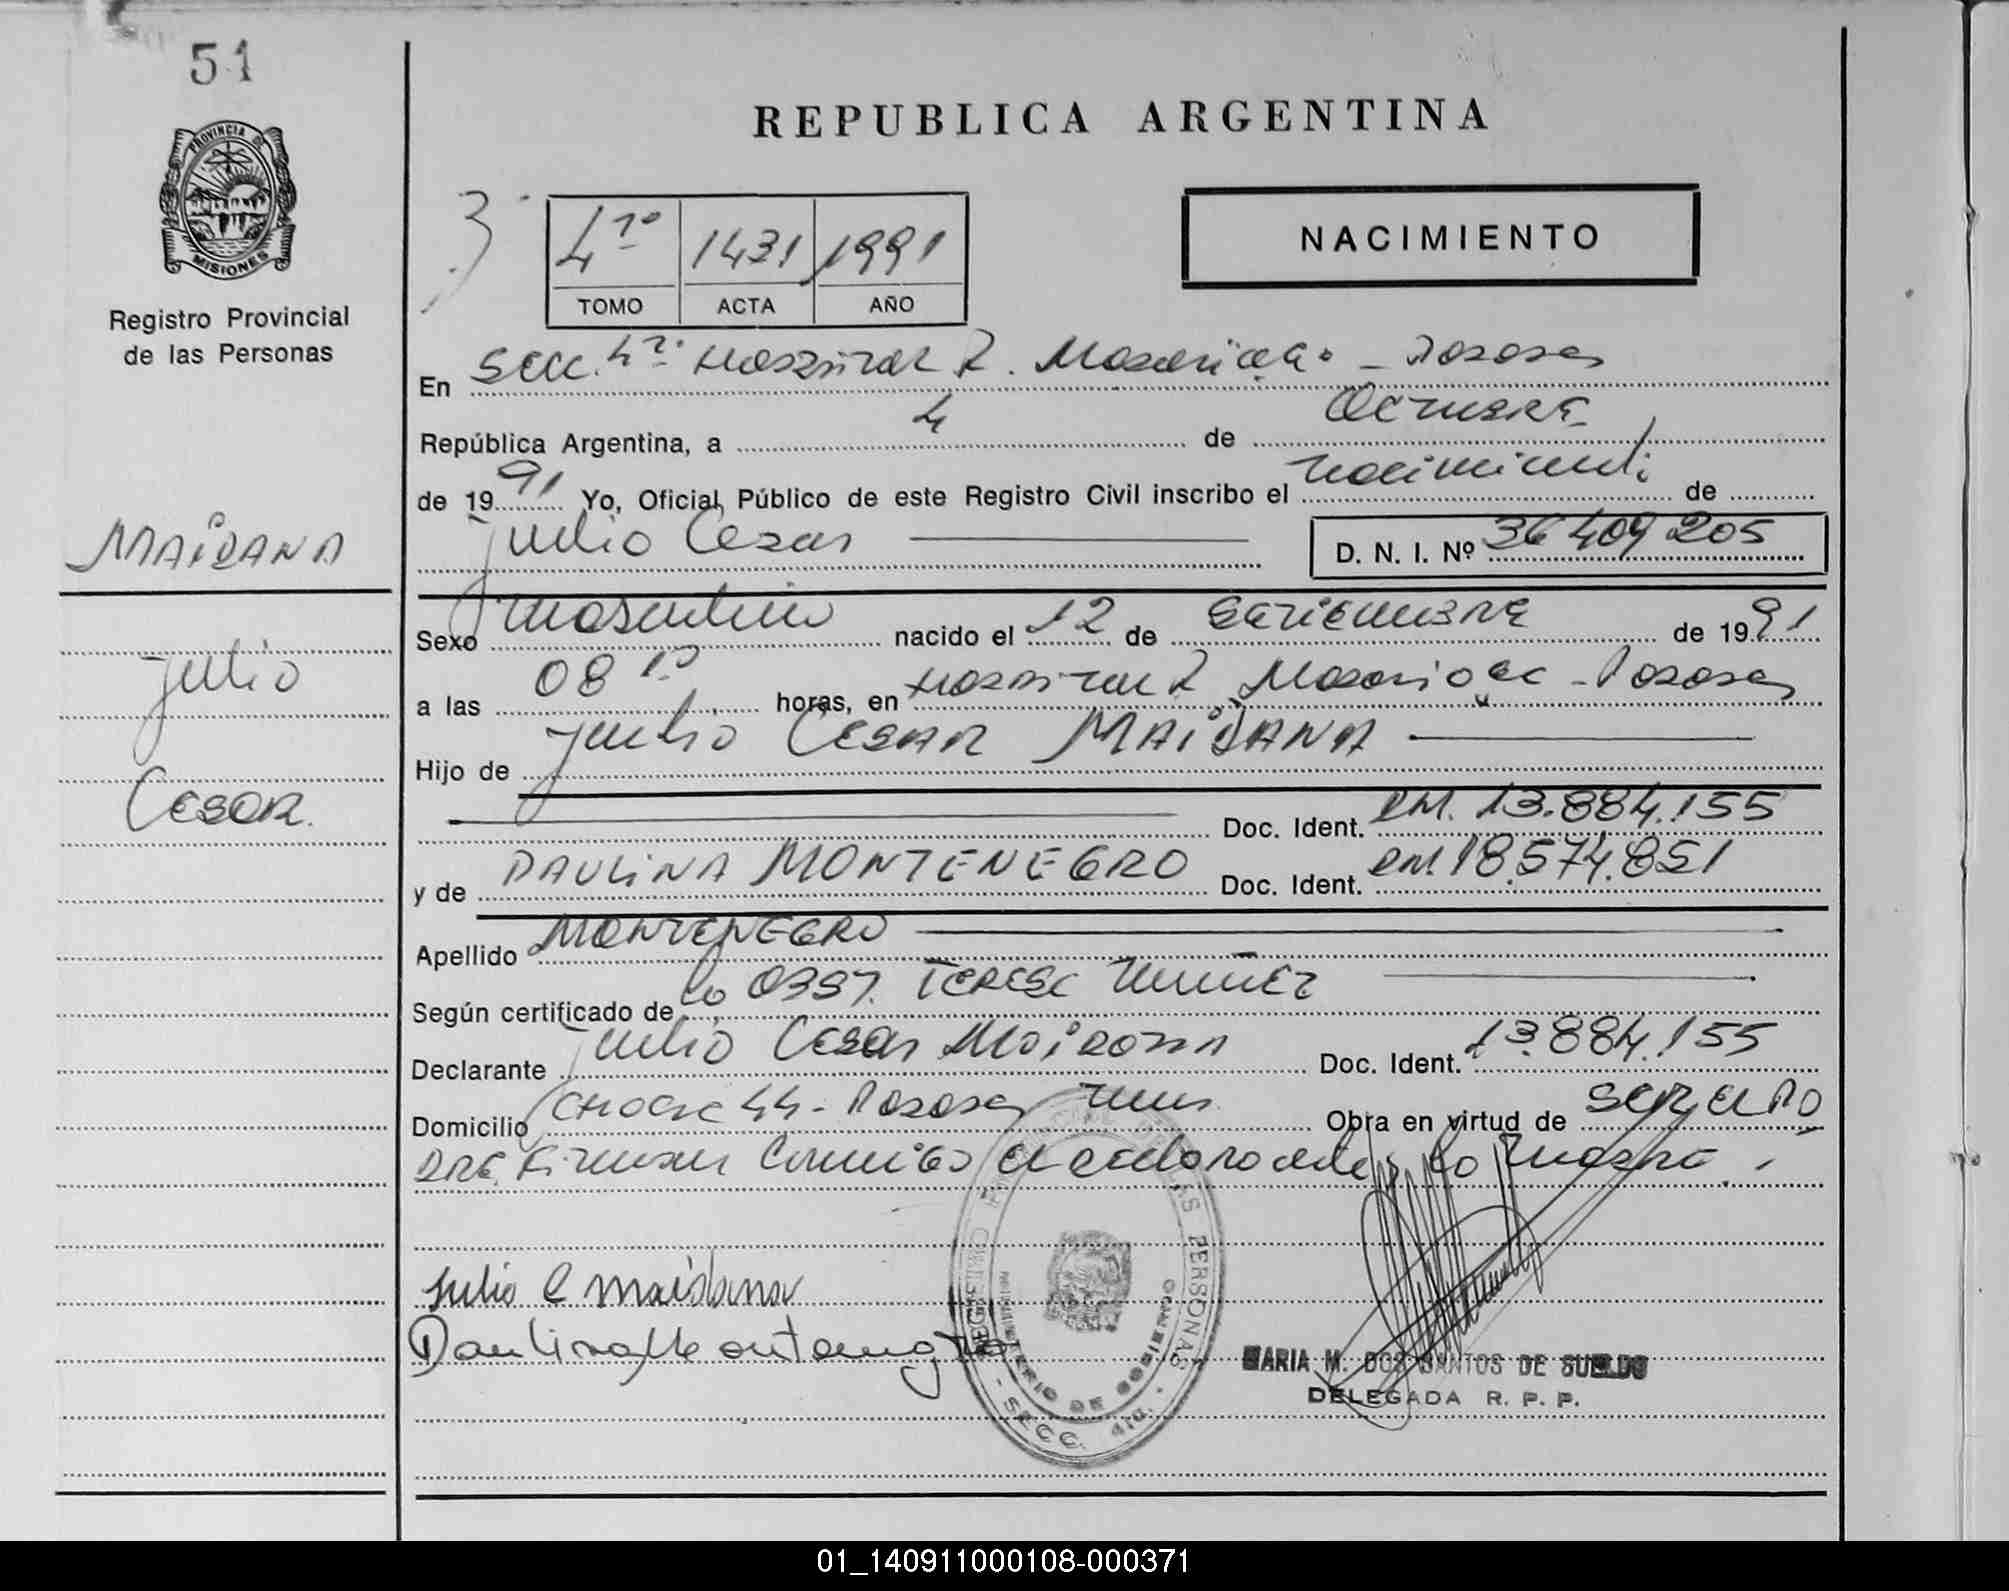 51
PROVINCIA DE
MISIONES
Registro Provincial
de las Personas
MAIDANA
Julio
Cesar.
REPUBLICA ARGENTINA
3
4to 1431 1991
TOMO ACTA AÑO
NACIMIENTO
En Secc. 4ta. Hospital R. Madariaga - Posadas
República Argentina, a 4 de Octubre
de 1991 Yo, Oficial Público de este Registro Civil inscribo el nacimiento de
Julio Cesar D. N. I. Nº 36 409 205
Sexo masculino nacido el 12 de Setiembre de 1991
a las 08 10 horas, en Hospital R. Madariaga - Posadas
Hijo de Julio Cesar MAIDANA
Doc. Ident. DNI. 13.884.155
y de PAULINA MONTENEGRO Doc. Ident. DNI. 18.574.851
Apellido MONTENEGRO
Según certificado de la Obst. Teresa Nuñez
Declarante Julio Cesar Maidana Doc. Ident. 13.884.155
Domicilio Chacra 44 - Posadas Obra en virtud de ser el
padre. Firman conmigo el declarante y la madre.
Julio C maidana
Paulina Montenegro
REGISTRO PROVINCIAL DE LAS PERSONAS
MINISTERIO DE GOBIERNO
- SECC. 4ta. -
MARIA M. DOS SANTOS DE SUELDO
DELEGADA R. P. P.
01_140911000108-000371